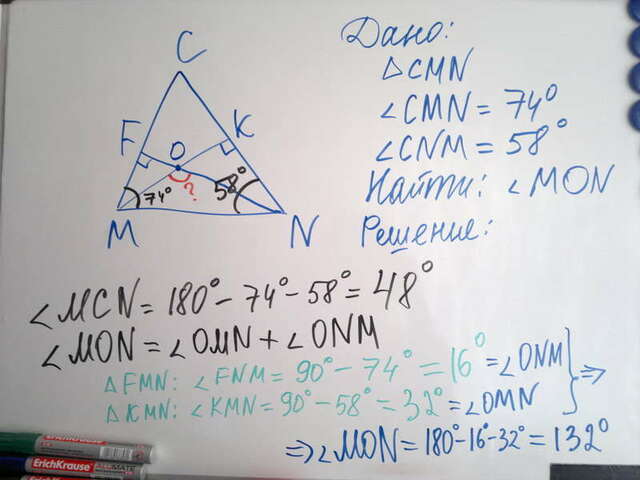 Дано:
△CMN
∠CMN = 74°
∠CNM = 58°
Найти: ∠MON
Решение:
C
F
O
K
?
74°
58°
M
N
∠MCN = 180° - 74° - 58° = 48°
∠MON = ∠OMN + ∠ONM
△FMN: ∠FNM = 90° - 74° = 16° = ∠ONM
△KMN: ∠KMN = 90° - 58° = 32° = ∠OMN
⇒
⇒ ∠MON = 180° - 16° - 32° = 132°
ErichKrause
ErichKrause